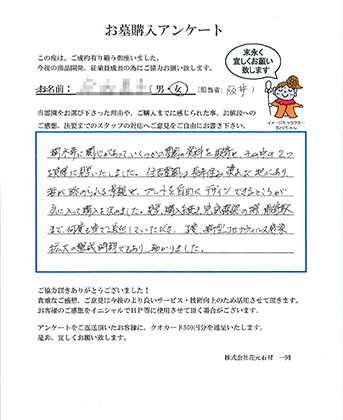 お墓購入アンケート
この度は、ご成約有り難う御座いました。
今後の商品開発、従業員成長の為にご協力お願い致します。
末永く
宜しくお願い
致します
お名前: 男・女 (担当者: 阪井 )
イメージキャラクター
当霊園をお選び下さった理由や、ご購入までに感じられた事、お値段への
ご感想、法要までのスタッフの対応へご意見をご自由にお書き下さい。
樹木葬に関心があっていくつかの霊園の資料を取寄せ、その中の2つ
を実際に見学いたしました。住吉霊園は長年住み慣れた地にあり、
海が眺められる景観や、プレートを自由にデザインできるところが
気に入って購入を決めました。見学、購入手続き、完成確認の際、最寄駅
まで何度も車で送迎していただき、丁度、新型コロナウィルス感染
拡大の懸念時期でもあり、助かりました。
ご協力頂きありがとうございました!
貴重なご感想、ご意見は今後のより良いサービス・技術向上のため活用させて頂きます。
お客様のご感想をイニシャルでHP等に使用させて頂く場合がございます。
アンケートをご返送頂いたお客様に、クオカード500円分を進呈いたします。
是非、宜しくお願い致します。
株式会社花元石材 一同